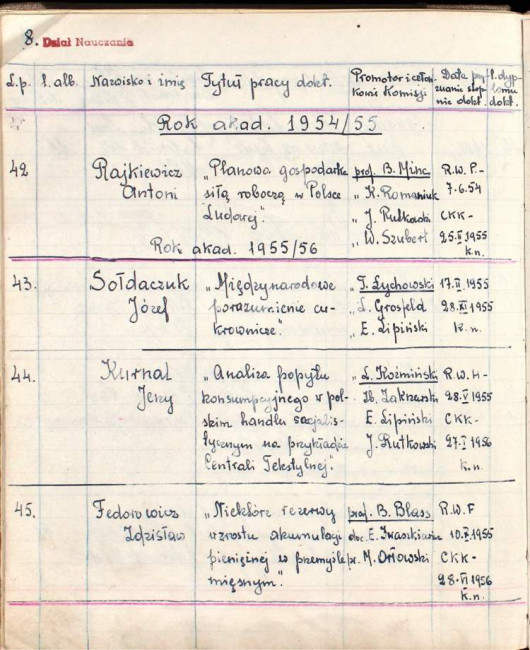 8. Dział Nauczania
L.p. l. alb. Nazwisko i imię Tytuł pracy dokt. Promotor i człon- Data przy l. dypl
kowie Komisji znanie stop lomu
nia dokt. dokt.
Rok akad. 1954/55
42. Rajkiewicz „Planowa gospodarka prof. B. Minc R.W.P.-
Antoni siłą roboczą w Polsce „ K. Romaniuk 7.6.54
Ludowej". „ J. Rutkowski CKK-
Rok akad. 1955/56 „ W. Szubert 25.II 1955
k.n.
43. Sołdaczuk „Międzynarodowe „ T. Łychowski 17.II.1955
Józef porozumienie cu- „ L. Grosfeld 28.XI 1955
krownicze". „ E. Lipiński k.n.
44. Kurnal „Analiza popytu „ L. Koźmiński R.W.H-
Jerzy konsumpcyjnego w pol- Zakrzewski 28.V 1955
skim handlu socjalis- E. Lipiński CKK-
tycznym na przykładzie J. Rutkowski 27.I 1956
Centrali Tekstylnej". k.n.
45. Fedorowicz „Niektóre rezerwy prof. B. Blass R.W.F
Zdzisław wzrostu akumulacji doc. E. Iwaszkiewicz 10.X.1955
pieniężnej w przemyśle pr. M. Orłowski CKK-
mięsnym". 28.VI 1956
k.n.